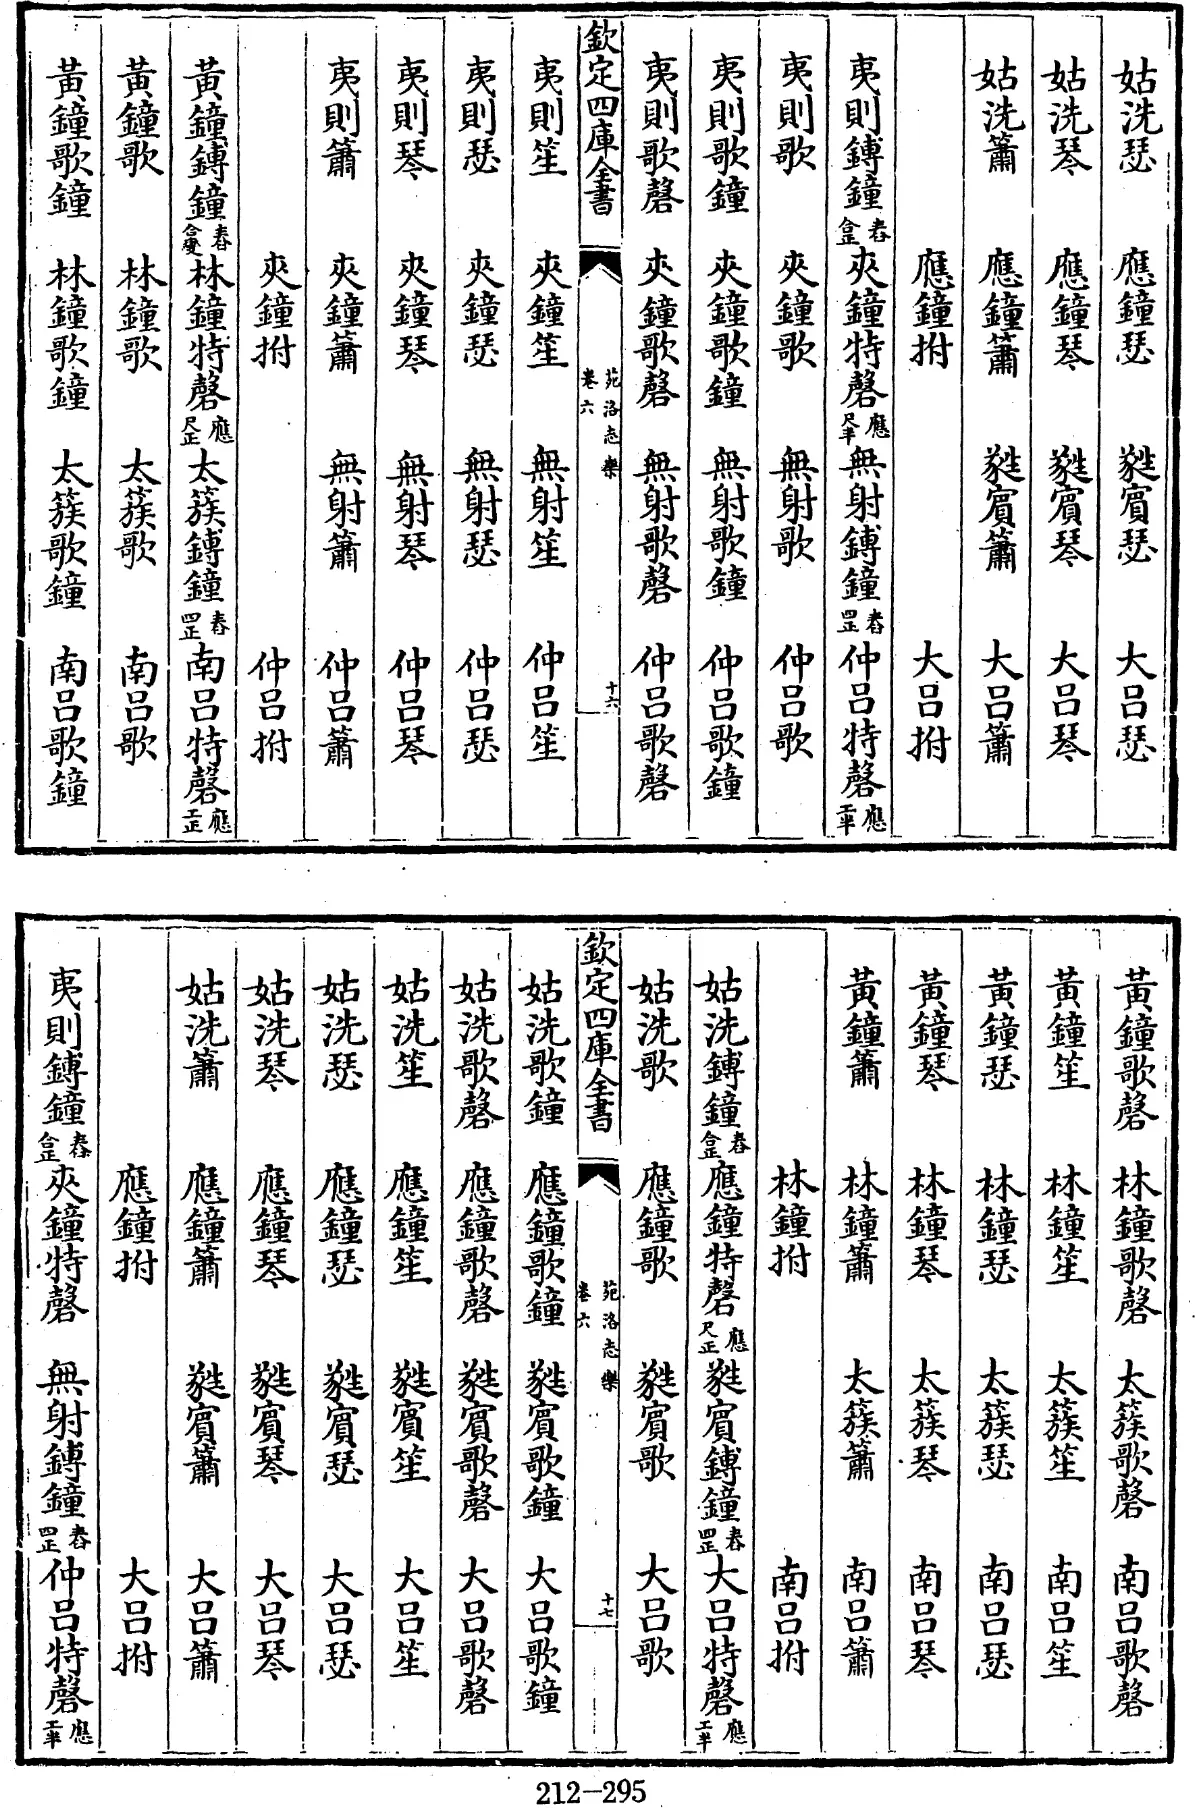 姑洗瑟 應鐘瑟 蕤賓瑟 大呂瑟
姑洗琴 應鐘琴 蕤賓琴 大呂琴
姑洗簫 應鐘簫 蕤賓簫 大呂簫
應鐘拊 大呂拊
夷則鎛鐘 夾鐘特磬 應 無射鎛鐘 仲呂特磬 應
夷則歌 夾鐘歌 無射歌 仲呂歌
夷則歌鐘 夾鐘歌鐘 無射歌鐘 仲呂歌鐘
夷則歌磬 夾鐘歌磬 無射歌磬 仲呂歌磬
欽定四庫全書 苑洛志樂 卷六 十六
夷則笙 夾鐘笙 無射笙 仲呂笙
夷則瑟 夾鐘瑟 無射瑟 仲呂瑟
夷則琴 夾鐘琴 無射琴 仲呂琴
夷則簫 夾鐘簫 無射簫 仲呂簫
夾鐘拊 仲呂拊
黃鐘鎛鐘 林鐘特磬 應尺正 太簇鎛鐘 南呂特磬 應工正
黃鐘歌 林鐘歌 太簇歌 南呂歌
黃鐘歌鐘 林鐘歌鐘 太簇歌鐘 南呂歌鐘
黃鐘歌磬 林鐘歌磬 太簇歌磬 南呂歌磬
黃鐘笙 林鐘笙 太簇笙 南呂笙
黃鐘瑟 林鐘瑟 太簇瑟 南呂瑟
黃鐘琴 林鐘琴 太簇琴 南呂琴
黃鐘簫 林鐘簫 太簇簫 南呂簫
林鐘拊 南呂拊
姑洗鎛鐘 應鐘特磬 應尺正 蕤賓鎛鐘 大呂特磬 應工半
姑洗歌 應鐘歌 蕤賓歌 大呂歌
欽定四庫全書 苑洛志樂 卷六 十七
姑洗歌鐘 應鐘歌鐘 蕤賓歌鐘 大呂歌鐘
姑洗歌磬 應鐘歌磬 蕤賓歌磬 大呂歌磬
姑洗笙 應鐘笙 蕤賓笙 大呂笙
姑洗瑟 應鐘瑟 蕤賓瑟 大呂瑟
姑洗琴 應鐘琴 蕤賓琴 大呂琴
姑洗簫 應鐘簫 蕤賓簫 大呂簫
應鐘拊 大呂拊
夷則鎛鐘 夾鐘特磬 無射鎛鐘 仲呂特磬 應工半
212-295